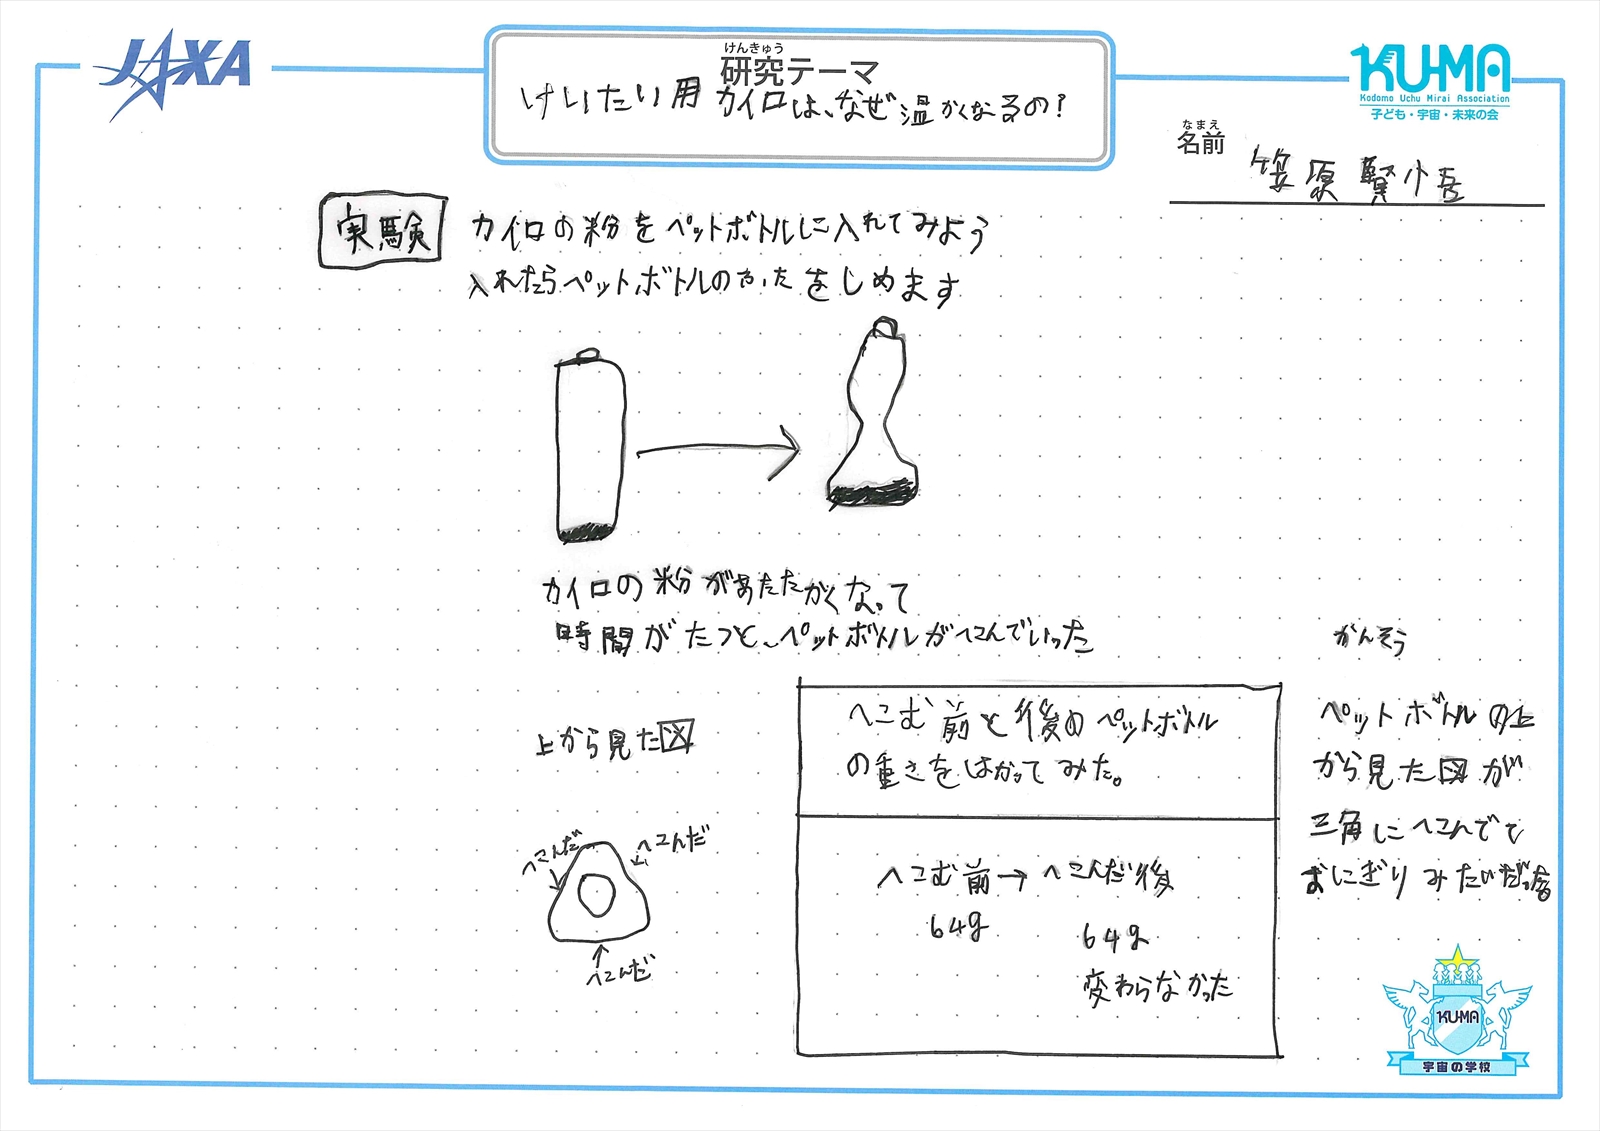 JAXA
けんきゅう
研究テーマ
けいたい用カイロは、なぜ温かくなるの?
KU-MA
Kodomo Uchu Mirai Association
子ども・宇宙・未来の会
なまえ
名前
笠原賢小吾
実験
カイロの粉をペットボトルに入れてみよう
入れたらペットボトルのふたをしめます
カイロの粉があたたかくなって
時間がたつと、ペットボトルがへこんでいった
上から見た図
へこんだ
へこんだ
へこんだ
へこむ前と後のペットボトル
の重さをはかってみた。
へこむ前→へこんだ後
64g
64g
変わらなかった
かんそう
ペットボトルの上
から見た図が
三角にへこんでて
おにぎりみたいだった
KU-MA
宇宙の学校